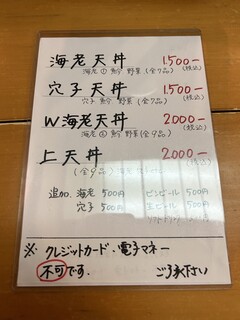 海老天丼 1.500-
海老① 魚介 野菜(全7品) (税込)
穴子天丼 1.500-
穴子 魚介 野菜(全7品) (税込)
W海老天丼 2000-
海老② 魚介 野菜(全9品) (税込)
上天丼 2000-
(全9品) (税込)
追加 海老 500円 ビンビール 500円
穴子 500円 生ビール 500円
ソフトドリンク
※ クレジットカード・電子マネー
不可です. ご了承下さい